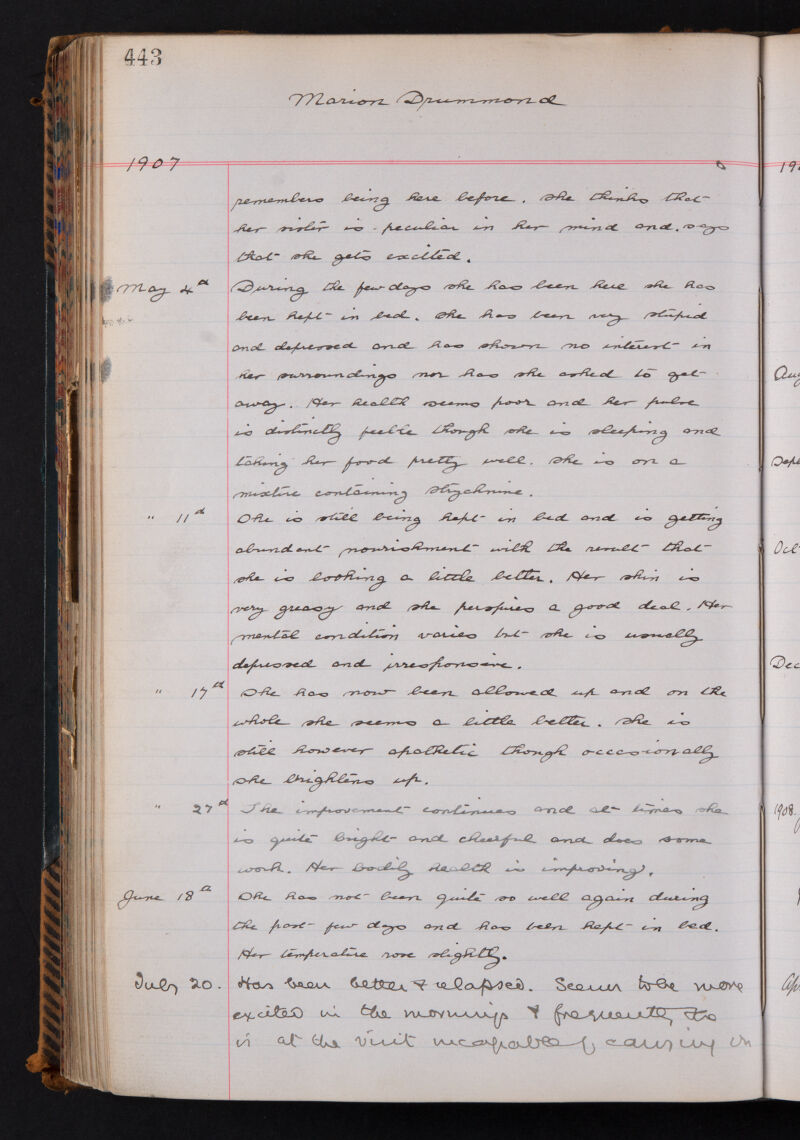 443
Marion Drummond
1907
remembers being here before. She thinks that
her sister is peculiar in her mind and says
that she gets excited.
May 4th During the few days she has been here she has
been kept in bed. She has been very stupid
and depressed and has shown no interest in
her surroundings nor has she asked to get
away. Her health seems poor and her pulse
is distinctly feeble though she is sleeping and
taking her food pretty well. She is on a
mixture containing strychnine.
" 11th She is still being kept in bed and is getting
abundant nourishment with the result that
she is looking a little better. Her skin is
very greasy and she perspires a good deal. Her
mental condition varies but she is usually
depressed and irresponsive.
" 17th She has now been allowed up and on the
whole she seems a little better. She is
still however apathetic though occasionally
she brightens up.
" 27th The improvement continues and at times she
is quite bright and cheerful and does some
work. Her bodily health is improving.
June 18th She has not been quite so well again during
the past few days and has been kept in bed.
Her temperature rose slightly.
July 20. Has been better & relapsed. Seems to be more
excited in the mornings & frequently
is at the visit incapable of
190
Aug
Sept
Oct
Dec
1908
Apr